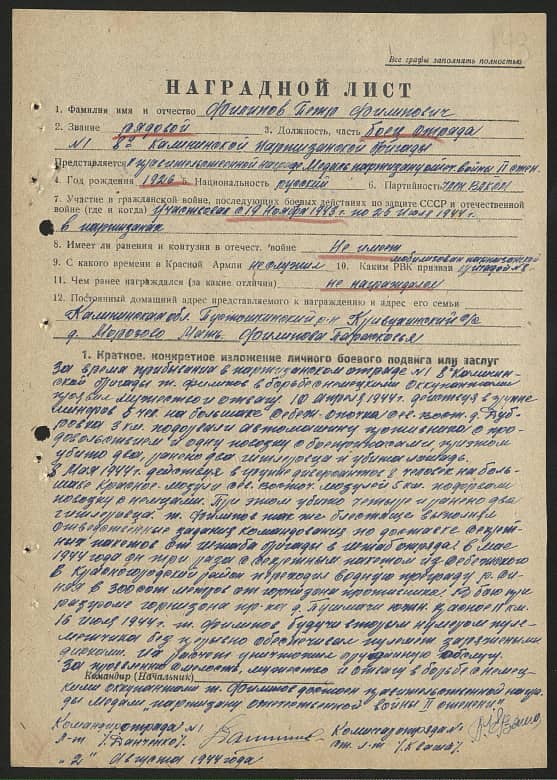 Все графы заполнять полностью
НАГРАДНОЙ ЛИСТ
1. Фамилия имя и отчество Филипов Петр Филипович
2. Звание рядовой 3. Должность, часть боец отряда
№1 8й Калининской Партизанской бригады
Представляется к правительственной награде Медаль партизану отечест. войны II степ.
4. Год рождения 1926 5. Национальность русский 6. Партийность член ВЛКСМ
7. Участие в гражданской войне, последующих боевых действиях по защите СССР и отечественной
войне (где и когда) Участвовал с 19 ноября 1943 г. по 25 июля 1944 г.
в партизанах
8. Имеет ли ранения и контузия в отечест. войне Не имеет
9. С какого времени в Красной Армии не служил 10. Каким РВК призван мобилизован партизанской бригадой №8
11. Чем ранее награждался (за какие отличия) не награждался
12. Постоянный домашний адрес представляемого к награждению и адрес его семьи
Калининская обл. Пустошкинский р-н Кривухинский с/с
д. Морозово Мать Филипова Парасковья
1. Краткое, конкретное изложение личного боевого подвига или заслуг
За время пребывания в партизанском отряде №1 8 Калинин-
ской бригады т. Филипов в борьбе с немецкими оккупантами
проявил мужество и отвагу. 10 апреля 1944 г. действуя в группе
минеров 5 чел на большаке Себеж. опочка сев. вост. д. Дуб-
ровка 3 км. подорвали автомашину противника с про-
довольствием и одну повозку с боеприпасами, при этом
убито два, ранено два гитлеровца и убита лошадь.
3 Мая 1944 г. действуя в группе диверсантов 8 человек на боль-
шаке Красное. Мозули сев. восточ. мозулей 5 км. подорвали
повозку с немцами. При этом убито четыре и ранено два
гитлеровца. т. Филипов так же блестяще выполнял
ответственные задания командования по доставке секрет-
ных пакетов от штаба бригады в штаб отряда. в мае
1944 года он три раза с секретным пакетом из Себежского
в Красногородский район переходил водную преграду р. Си-
няя в 300 сот метров от гарнизона противника. В бою при
разгроме гарнизона пр-ка д. южн. 11 км.
16 июля 1944 г. т. Филипов будучи вторым номером пуле-
метчика без перерывно обеспечивал пулемет заряженными
дисками. уничтожил орудийную обслугу.
За проявленную смелость, мужество и отвагу в борьбе с немец-
Командир (Начальник)
кими оккупантами т. Филипов достоен правительственной награ-
ды медаль "партизану отечественной войны II степени"
Командир отряда №1 Комиссар отряда №1
л-т /Данченко/ ст. л-т /Кваша/
"2" Августа 1944 года